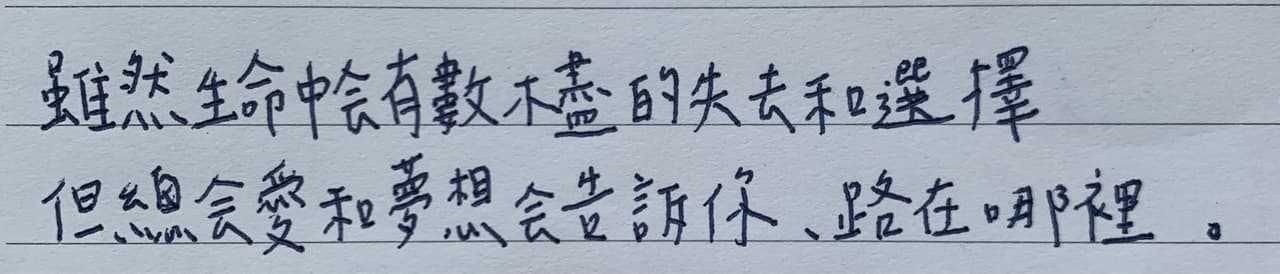 雖然生命中会有數不盡的失去和選擇
但總会愛和夢想会告訴你、路在哪裡。